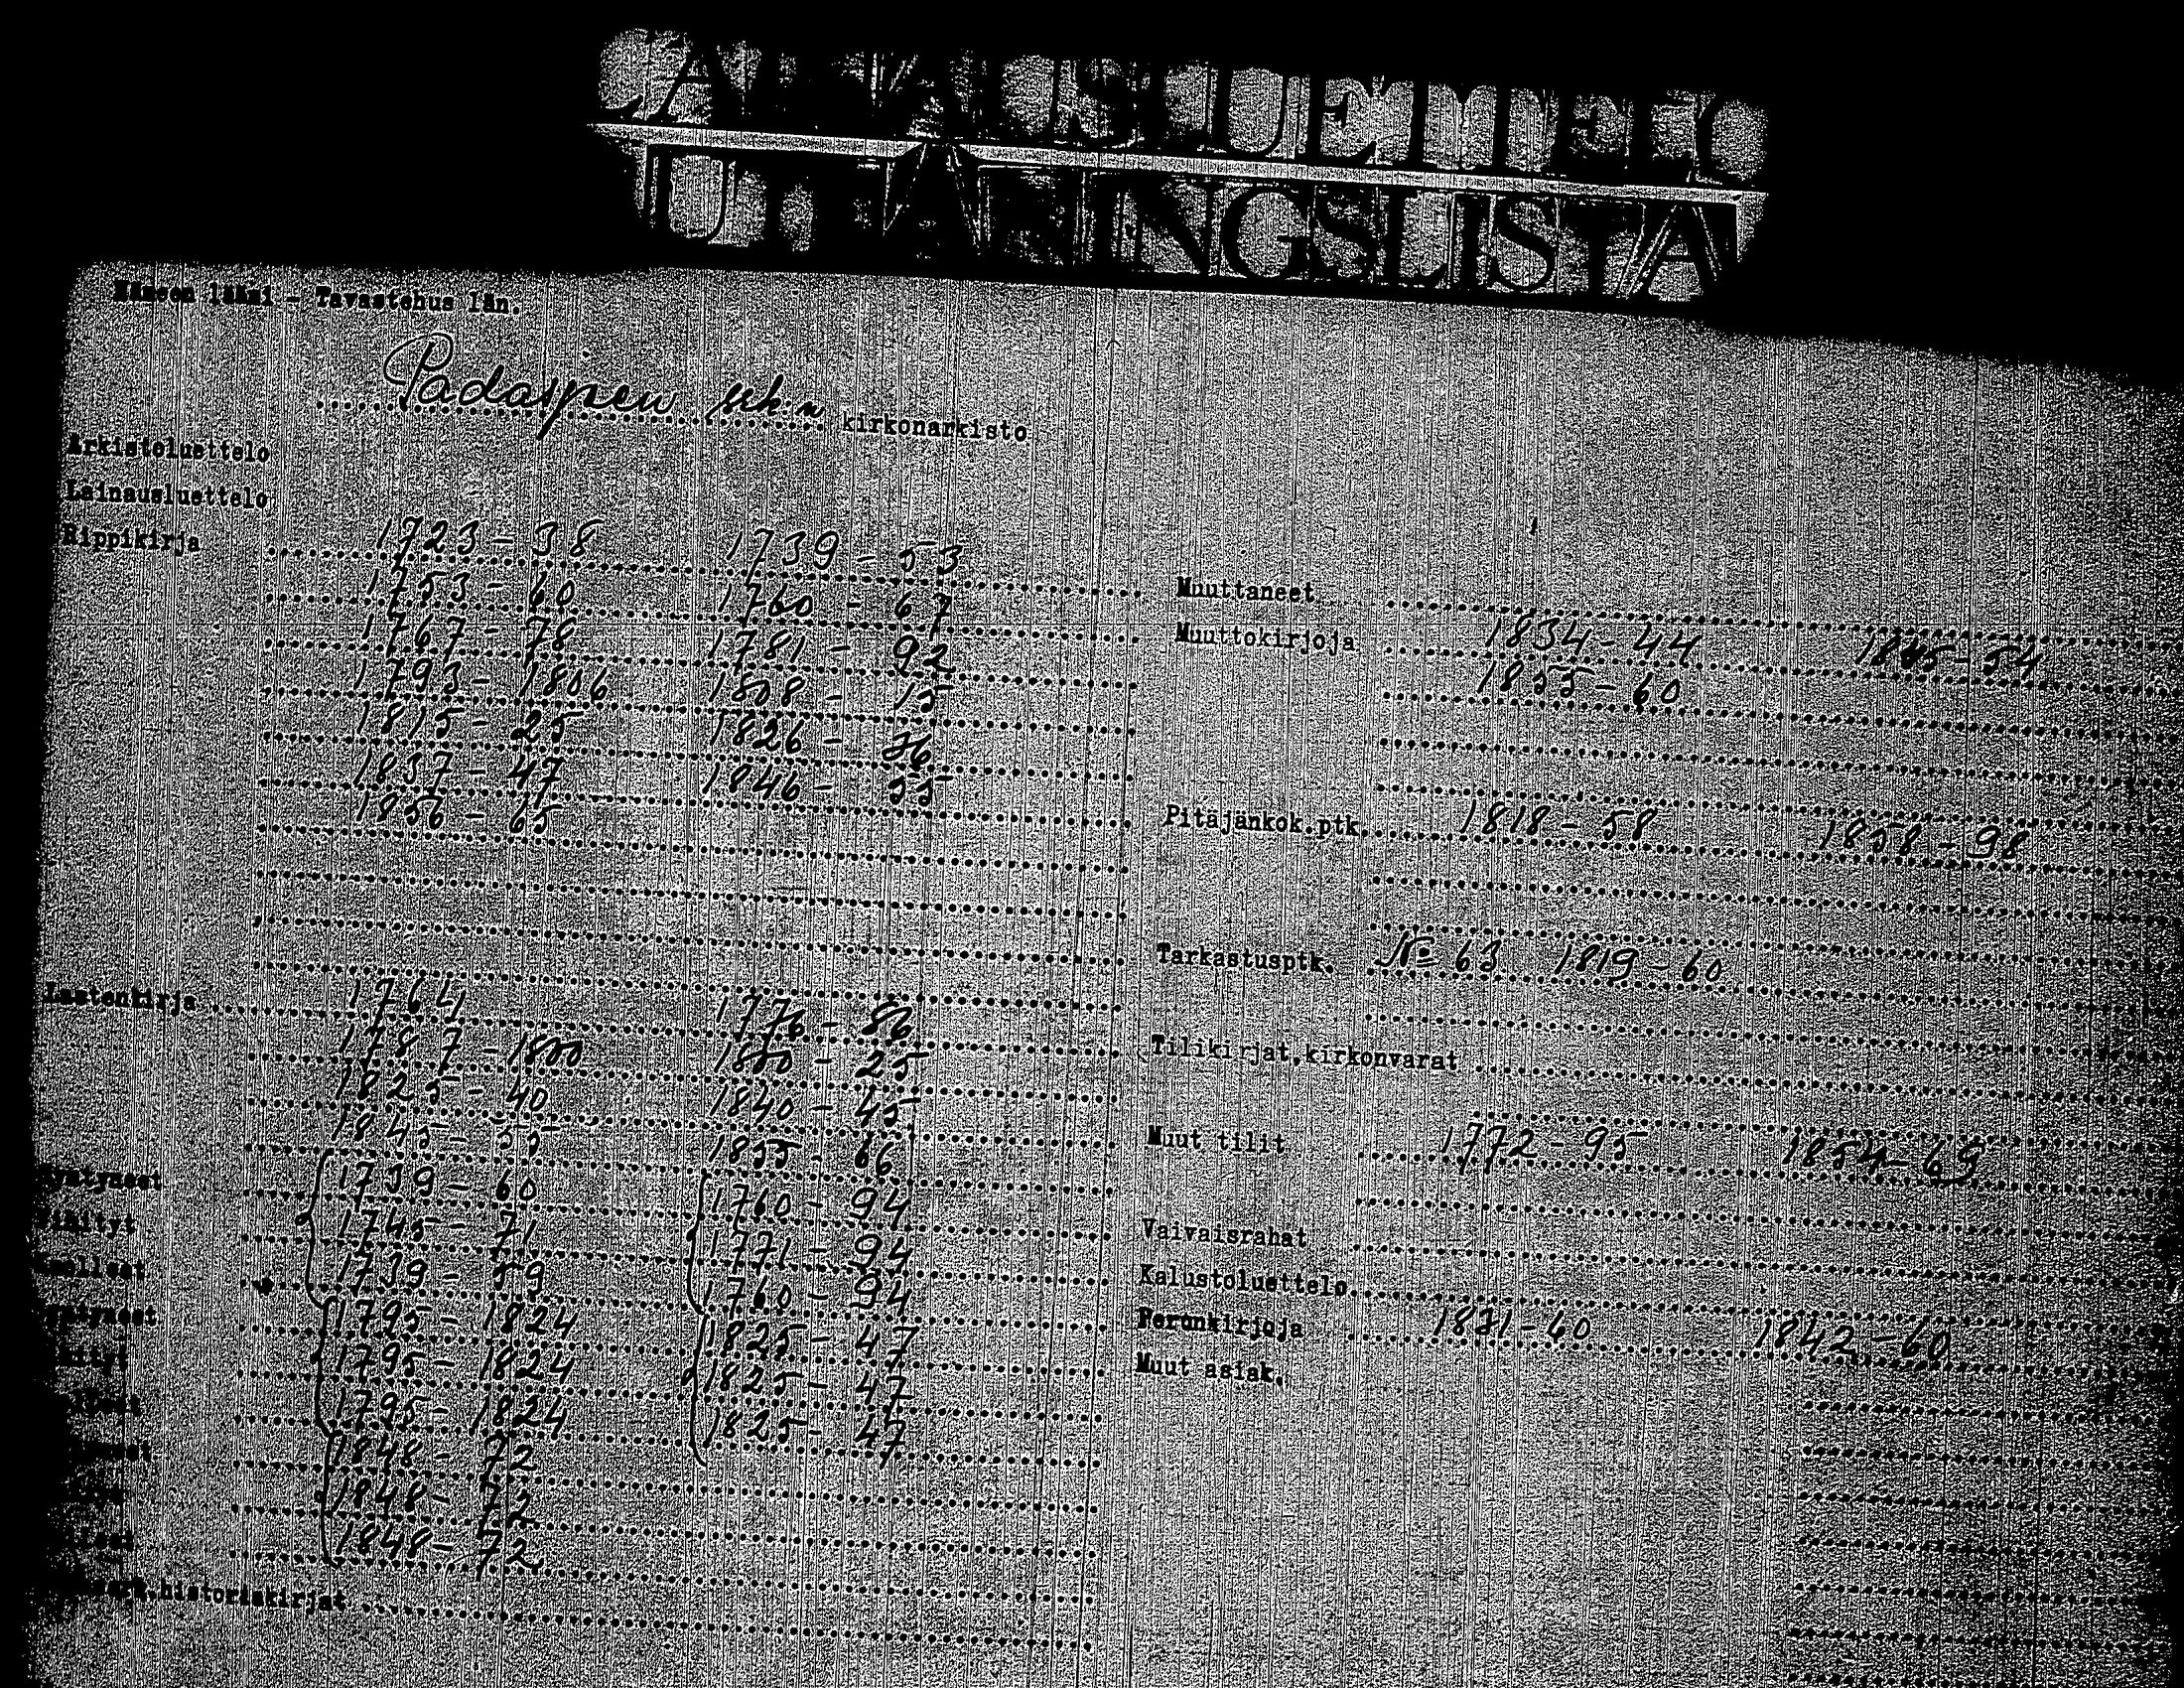 LAINAUSLUETTELO
UTLÅNINGSLISTA
Hämeen lääni - Tavastehus län.
Padasjoen srk:n kirkonarkisto
Arkistoluettelo
Lainausluettelo
Rippikirja 1723-38 1739-53
1753-60 1760-67
1767-78 1781-92
1793-1806 1808-15
1815-25 1826-36
1837-47 1846-55
1856-65
Lastenkirja 1764 1776-86
1787-1800 1800-25
1825-40 1840-45
1845-55 1855-66
Syntyneet 1739-60 1760-94
Vihityt 1745-71 1771-94
Kuolleet 1739-59 1760-94
Syntyneet 1795-1824 1825-47
Vihityt 1795-1824 1825-47
1795-1824 1825-47
1848-72
1848-72
1848-72
historiakirjat
Muuttaneet
Muuttokirjoja 1834-44 1845-54
1855-60
Pitäjänkok.ptk. 1818-58 1858-98
Tarkastusptk. No 63 1819-60
Tilikirjat,kirkonvarat
Muut tilit 1772-95 1854-69
Vaivaisrahat
Kalustoluettelo
Perunkirjoja -60 1842-60
Muut asiak.